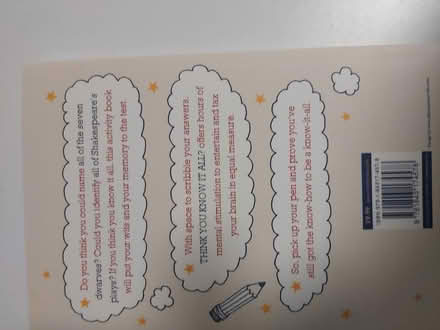 Do you think you could name all of the seven
dwarves? Could you identify all of Shakespeare's
plays? If you think you know it all, this activity book
will put your wits and your memory to the test.
With space to scribble your answers,
THINK YOU KNOW IT ALL? offers hours of
mental stimulation to entertain and tax
your brain in equal measure.
So, pick up your pen and prove you've
still got the know-how to be a know-it-all.